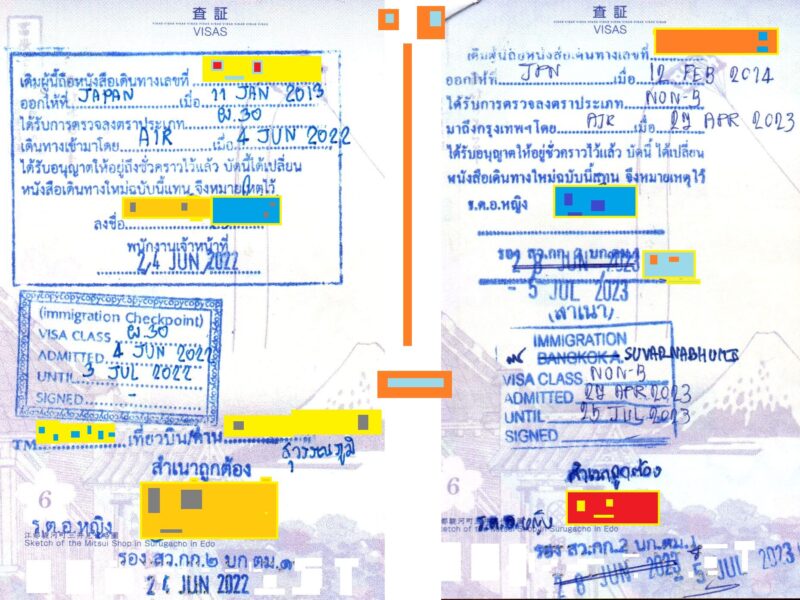 査証
VISAS
เดิมผู้นี้ถือหนังสือเดินทางเลขที่
ออกให้ที่ JAPAN เมื่อ 11 JAN 2013
ได้รับการตรวจลงตราประเภท ผ.30
เดินทางเข้ามาโดย AIR เมื่อ 4 JUN 2022
ได้รับอนุญาตให้อยู่ชั่วคราวไว้แล้ว บัดนี้ได้เปลี่ยน
หนังสือเดินทางใหม่ฉบับนี้แทน จึงหมายเหตุไว้
ลงชื่อ
พนักงานเจ้าหน้าที่
24 JUN 2022
(immigration Checkpoint)
VISA CLASS ผ.30
ADMITTED 4 JUN 2022
UNTIL 3 JUL 2022
SIGNED -
TM. เที่ยวบิน/ด่าน
สุวรรณภูมิ
สำเนาถูกต้อง
6
ร.ต.อ.หญิง
江都駿河町三井見世略図
Sketch of the Mitsui Shop in Surugacho in Edo
รอง สว.กก.๒ บก ตม.๑
24 JUN 2022
査証
VISAS
เดิมผู้นี้ถือหนังสือเดินทางเลขที่
ออกให้ที่ JPN เมื่อ 12 FEB 2014
ได้รับการตรวจลงตราประเภท NON-B
มาถึงกรุงเทพฯโดย AIR เมื่อ 27 APR 2023
ได้รับอนุญาตให้อยู่ชั่วคราวไว้แล้ว บัดนี้ ได้เปลี่ยน
หนังสือเดินทางใหม่ฉบับนี้แทน จึงหมายเหตุไว้
ร.ต.อ.หญิง
รอง สว.กก. บก.ตม.1
28 JUN 2023
- 5 JUL 2023
(สำเนา)
IMMIGRATION
BANGKOK A. SUVARNABHUMI
VISA CLASS NON-B
ADMITTED 27 APR 2023
UNTIL 25 JUL 2023
SIGNED
สำเนาถูกต้อง
6
ร.ต.อ.หญิง
Sketch of the Mitsui Shop in Surugacho in Edo
รอง สว.กก.2 บก.ตม.1
28 JUN 2023 - 5 JUL 2023